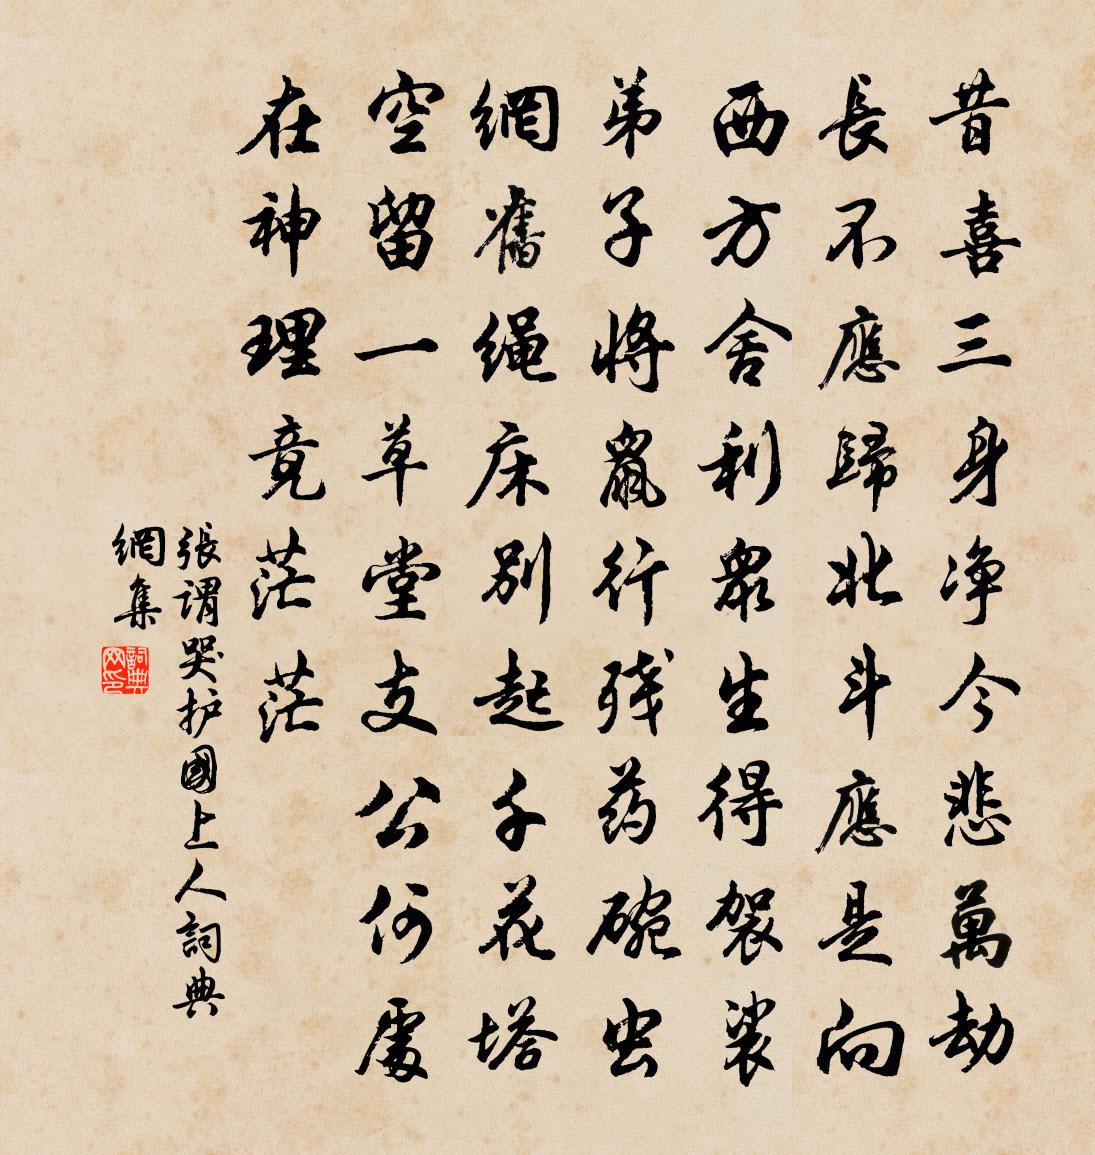 昔喜三身净今悲萬劫
長不應歸北斗應是向
西方舍利眾生得袈裟
弟子將鼠行残药碗虫
網舊绳床别起千花塔
空留一草堂支公何處
在神理竟茫茫
張谓哭护國上人詞典
網集
詞典
网印